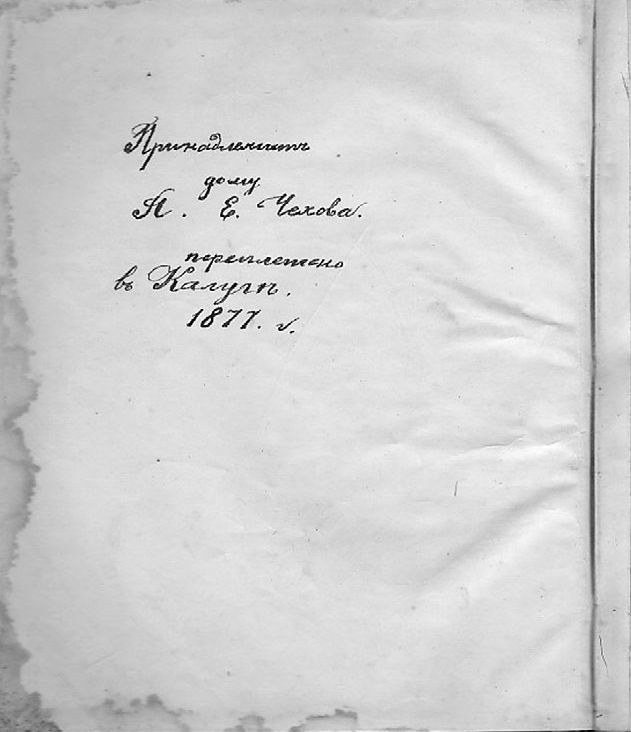 Принадлежитъ
дому
П. Е. Чехова.
переплетено
въ Калугѣ.
1877. г.